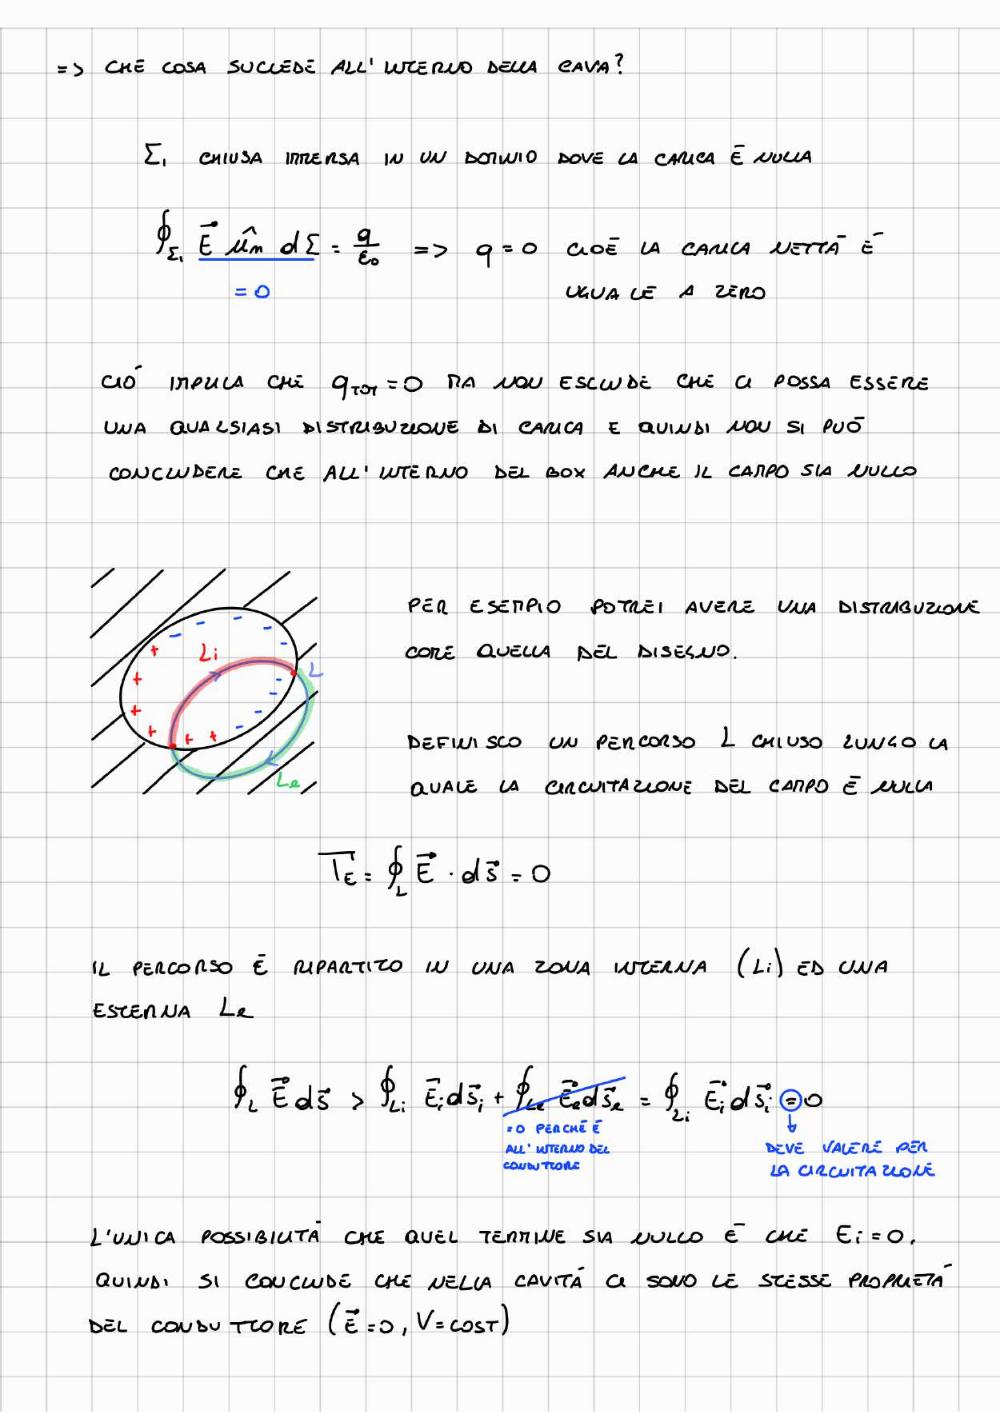 => CHE COSA SUCCEDE ALL'INTERNO DELLA CAVA?
Σ₁ CHIUSA IMMERSA IN UN DOMINIO DOVE LA CARICA È NULLA
∮_Σ₁ E⃗ û_n dΣ = q/ε₀ => q = 0 CIOÈ LA CARICA NETTA È
= 0 UGUALE A ZERO
CIÒ IMPLICA CHE q_TOT = 0 MA NON ESCLUDE CHE CI POSSA ESSERE
UNA QUALSIASI DISTRIBUZIONE DI CARICA E QUINDI NON SI PUÒ
CONCLUDERE CHE ALL'INTERNO DEL BOX ANCHE IL CAMPO SIA NULLO
PER ESEMPIO POTREI AVERE UNA DISTRIBUZIONE
COME QUELLA DEL DISEGNO.
Li
L
Le
DEFINISCO UN PERCORSO L CHIUSO LUNGO LA
QUALE LA CIRCUITAZIONE DEL CAMPO È NULLA
Γ_E = ∮_L E⃗ · ds⃗ = 0
IL PERCORSO È RIPARTITO IN UNA ZONA INTERNA (Li) ED UNA
ESTERNA Le
∮_L E⃗ ds⃗ > ∮_Li E⃗i ds⃗i + ∮_Le E⃗e ds⃗e = ∮_Li E⃗i ds⃗i = 0
= 0 PERCHÉ È
ALL'INTERNO DEL
CONDUTTORE
DEVE VALERE PER
LA CIRCUITAZIONE
L'UNICA POSSIBILITÀ CHE QUEL TERMINE SIA NULLO È CHE Ei = 0.
QUINDI SI CONCLUDE CHE NELLA CAVITÀ CI SONO LE STESSE PROPRIETÀ
DEL CONDUTTORE (E⃗ = 0, V = COST)